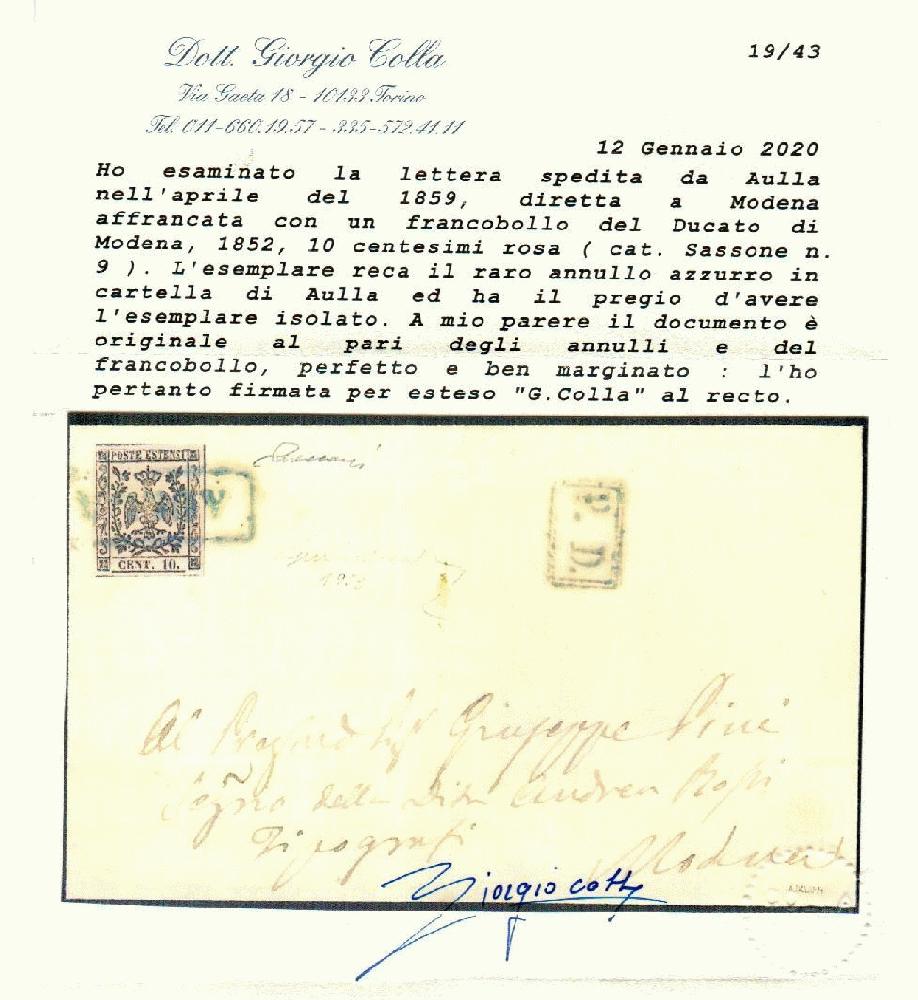 Dott. Giorgio Colla
19/43
Via Gaeta 18 - 10133 Torino
Tel. 011-660.19.57 - 335-572.41.11
12 Gennaio 2020
Ho esaminato la lettera spedita da Aulla
nell'aprile del 1859, diretta a Modena
affrancata con un francobollo del Ducato di
Modena, 1852, 10 centesimi rosa ( cat. Sassone n.
9 ). L'esemplare reca il raro annullo azzurro in
cartella di Aulla ed ha il pregio d'avere
l'esemplare isolato. A mio parere il documento è
originale al pari degli annulli e del
francobollo, perfetto e ben marginato : l'ho
pertanto firmata per esteso "G.Colla" al recto.
POSTE ESTENSI
CENT. 10.
P. D.
Al Giuseppe Pini
Andrea Rossi
Tipografi
Modena
Giorgio Colla